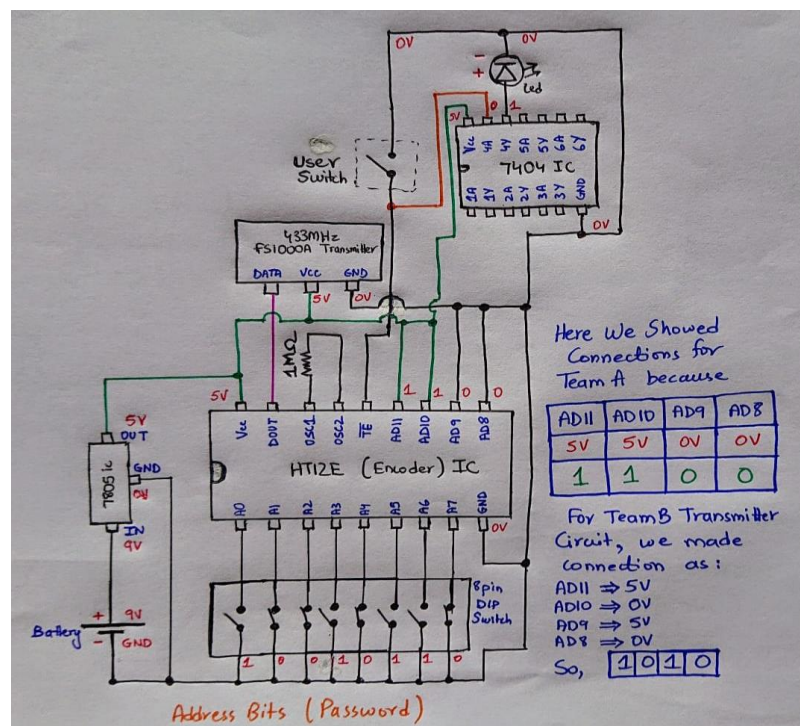 0V
0V
-
+
Led
5V
0
1
Vcc
4A
4Y
5A
5Y
6A
6Y
7404 IC
1A
1Y
2A
2Y
3A
3Y
GND
0V
User
Switch
433MHz
FS1000A Transmitter
DATA
Vcc
GND
5V
0V
1MΩ
5V
1
1
0
0
Vcc
DOUT
OSC1
OSC2
TE
AD11
AD10
AD9
AD8
HT12E (Encoder) IC
A0
A1
A2
A3
A4
A5
A6
A7
GND
0V
5V
OUT
GND
0V
7805 ic
IN
9V
+ 9V
Battery
- GND
8pin
DIP
Switch
1
0
0
1
0
1
1
0
Address Bits (Password)
Here We Showed
Connections for
Team A because
AD11 AD10 AD9 AD8
5V 5V 0V 0V
1 1 0 0
For Team B Transmitter
Circuit, we made
connection as:
AD11 ⇒ 5V
AD10 ⇒ 0V
AD9 ⇒ 5V
AD8 ⇒ 0V
So, 1 0 1 0